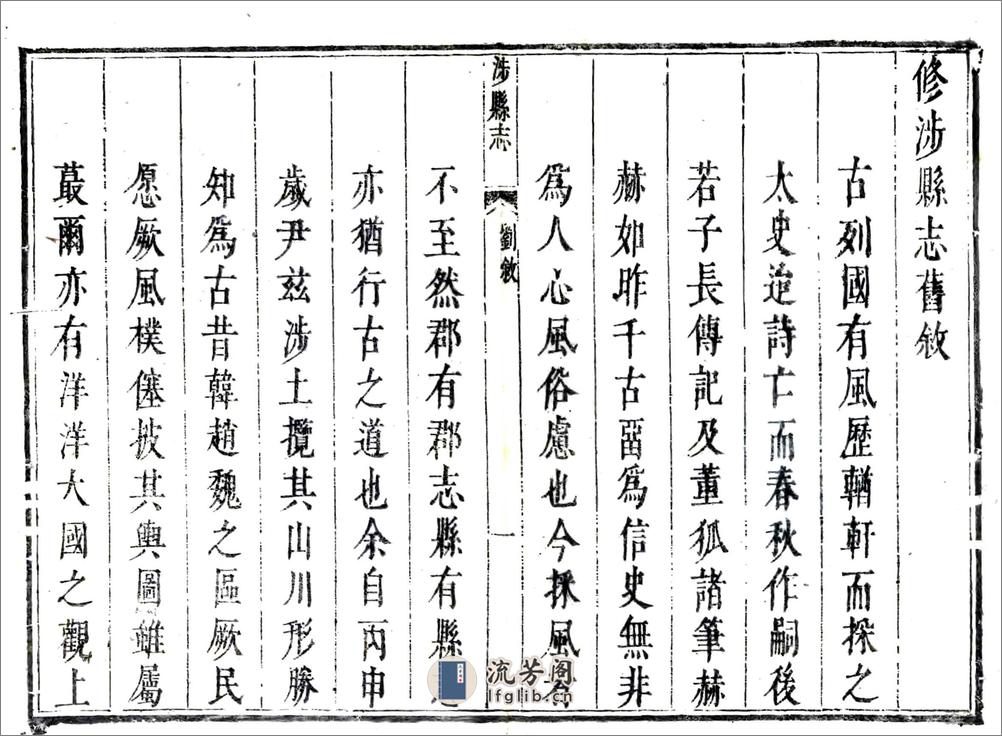 修涉縣志舊敘
古列國有風歷輶軒而採之
太史迨詩亡而春秋作嗣後
若子長傳記及董狐諸筆赫
赫如昨千古畱為信史無非
為人心風俗慮也今採風
涉縣志 劉敘 一
不至然郡有郡志縣有縣
亦猶行古之道也余自丙申
歲尹茲涉土攬其山川形勝
知為古昔韓趙魏之區厥民
愿厥風樸僿披其輿圖雖屬
蕞爾亦有洋洋大國之觀上
流芳阁
lfglib.cn